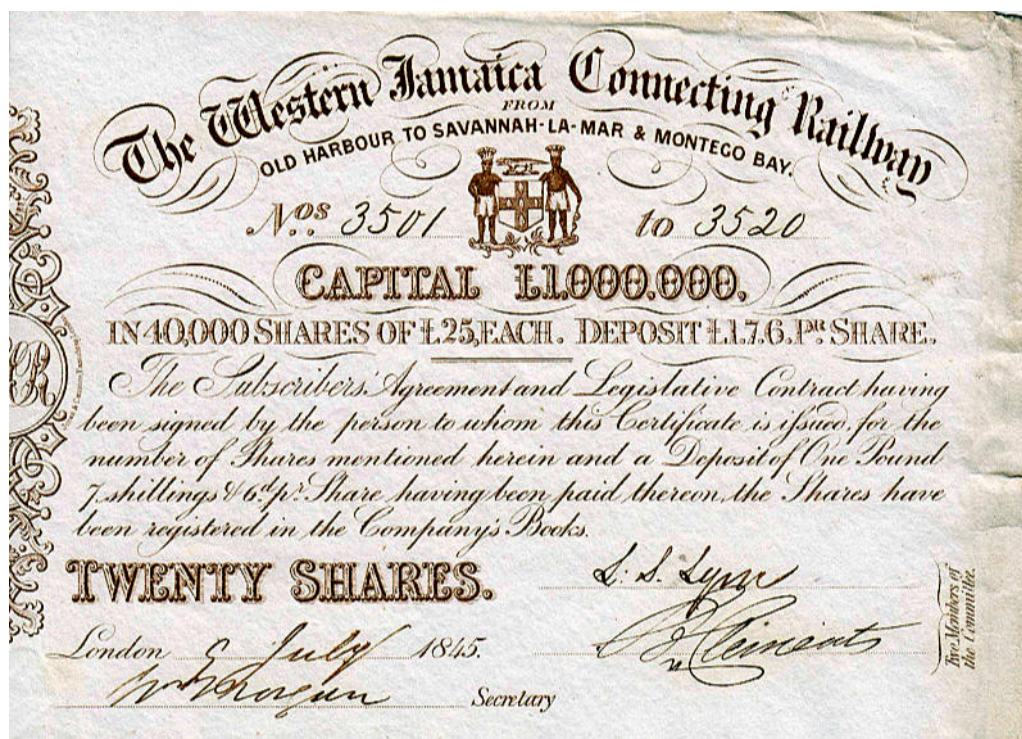 The Western Jamaica Connecting Railway
FROM
OLD HARBOUR TO SAVANNAH-LA-MAR & MONTEGO BAY.
Nos. 3501 to 3520
CAPITAL £1.000.000.
IN 40,000 SHARES OF £25, EACH. DEPOSIT £1.7.6. Pr. SHARE.
The Subscribers' Agreement and Legislative Contract having
been signed by the person to whom this Certificate is issued, for the
number of Shares mentioned herein and a Deposit of One Pound
7 shillings & 6d. pr. Share having been paid thereon, the Shares have
been registered in the Company's Books.
TWENTY SHARES.
L. S. Lyne
Clements
Two Members of
the Committee.
London 9 July 1845.
Wm Morgan Secretary